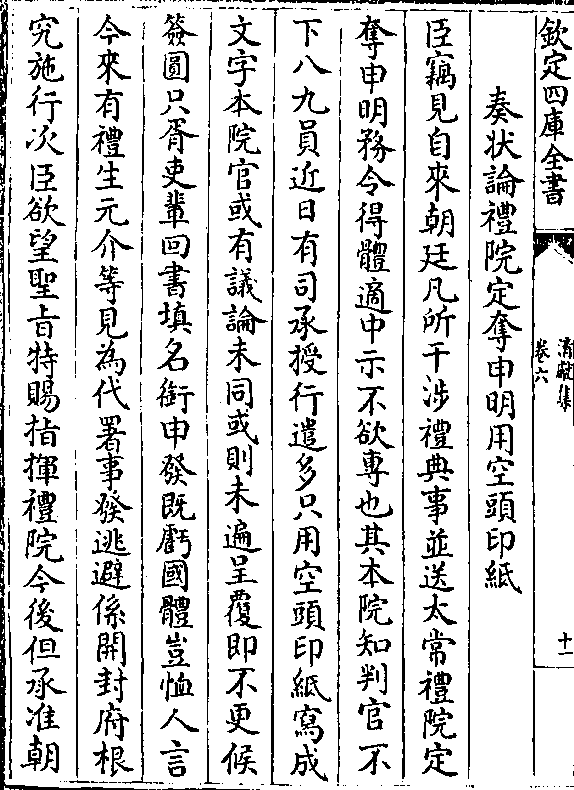 欽定四庫全書
清獻集
卷六
十一
奏状論禮院定奪申明用空頭印紙
臣竊見自來朝廷凡所干涉禮典事並送太常禮院定
奪申明務令得體適中示不欲專也其本院知判官不
下八九員近日有司承授行遣多只用空頭印紙寫成
文字本院官或有議論未同或則未遍呈覆即不更候
簽圓只胥吏輩回書填名銜申發既虧國體豈恤人言
今來有禮生元介等見為代署事發逃避係開封府根
究施行次臣欲望聖㫖特賜指揮禮院今後但承准朝